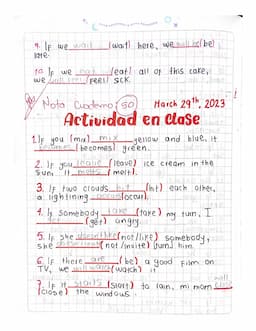 9. If we wait (wait) here, we will be (be)
late.
10. If we not (eat) all of this cake,
we will feel (feel) sick.
Nota Cuaderno 50 March 29th, 2023
Actividad en clase
1. If you (mix) mix yellow and blue, it
becomes (becomes) green.
2. If you leave (leave) ice cream in the
sun, it melts (melt).
3. If two clouds hit (hit) each other,
a lightining (occur).
4. If somebody take (take) my turn, I
(get) angry.
5. If she doesn't like (not/like) somebody,
she (not/invite) (him) him.
6. If there are (be) a good film on
TV, we will watch (watch) it
7. If it starts (start) to rain, mi mom will
(close) the windows.